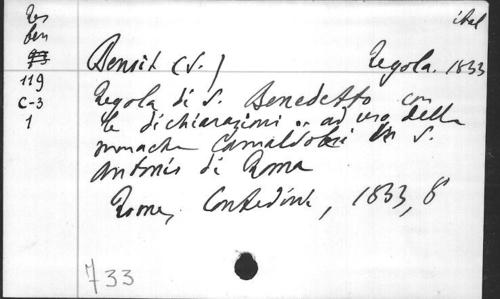 ital
Res
ben
93
119
C-3
1
Benoit (S.) Regola. 1833
Regola di S. Benedetto con
le dichiarazioni .. ad uso delle
monache Camaldolesi in S.
Antonio di Roma
Rome, Contedini, 1833, 8
733